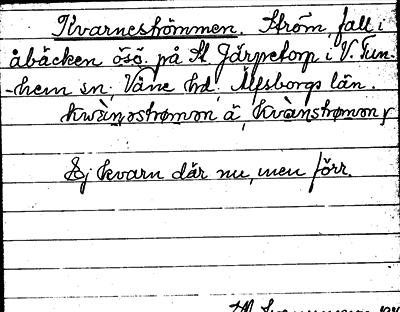 Kvarneströmmen. Ström, fall i
åbäcken ösö. på St. Järpetorp i V. Tun-
-hem sn; Väne hd; Älfsborgs län.
kwànostrømon ä, kvànstrømon
Ej kvarn där nu, men förr.